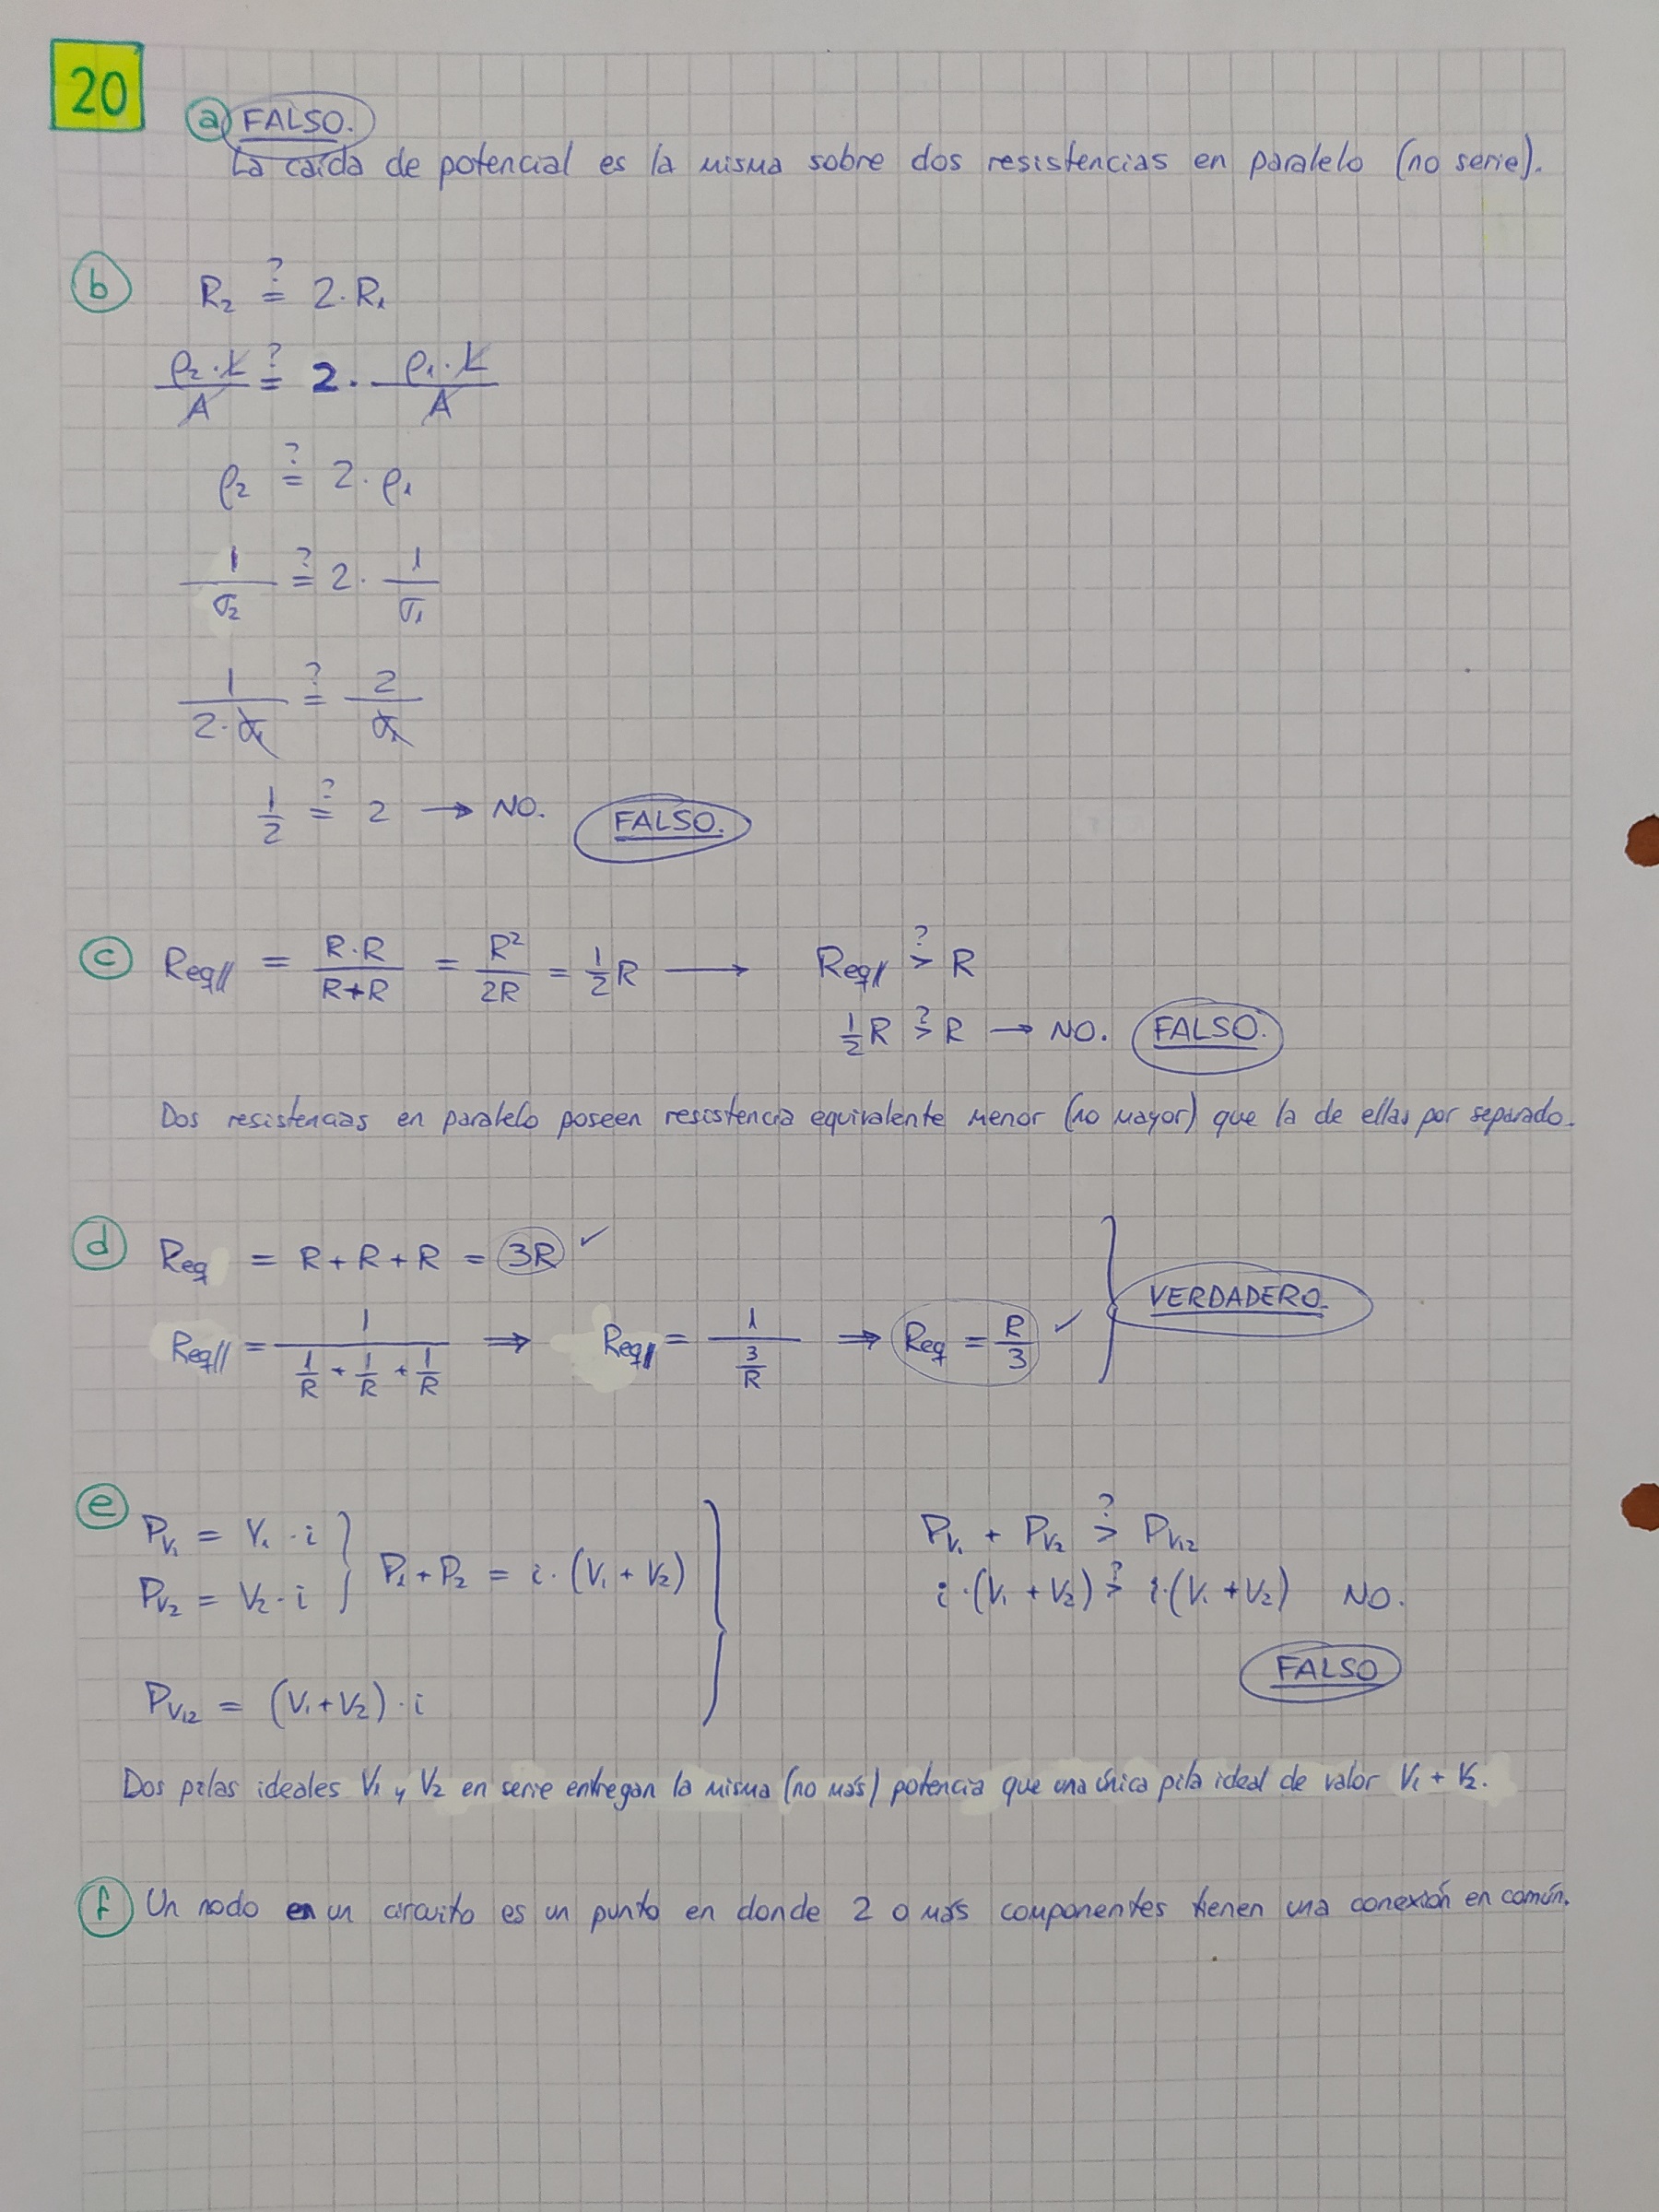 20
a FALSO.
La caída de potencial es la misma sobre dos resistencias en paralelo (no serie).
b R₂ ≟ 2·R₁
ρ₂·L/A ≟ 2· ρ₁·L/A
ρ₂ ≟ 2·ρ₁
1/σ₂ ≟ 2· 1/σ₁
1/(2·σ₁) ≟ 2/σ₁
1/2 ≟ 2 → NO. FALSO.
c Req// = R·R/(R+R) = R²/2R = 1/2 R → Req// >? R
1/2 R >? R → NO. FALSO.
Dos resistencias en paralelo poseen resistencia equivalente menor (no mayor) que la de ellas por separado.
d Req = R + R + R = 3R ✓
Req// = 1/(1/R + 1/R + 1/R) ⇒ Req// = 1/(3/R) ⇒ Req = R/3 ✓ } VERDADERO.
e Pv₁ = V₁ · i
Pv₂ = V₂ · i } P₁ + P₂ = i · (V₁ + V₂)
Pv₁₂ = (V₁ + V₂) · i
Pv₁ + Pv₂ >? Pv₁₂
i·(V₁ + V₂) >? i·(V₁ + V₂) NO.
FALSO
Dos pilas ideales V₁ y V₂ en serie entregan la misma (no más) potencia que una única pila ideal de valor V₁ + V₂.
f Un nodo en un circuito es un punto en donde 2 o más componentes tienen una conexión en común.